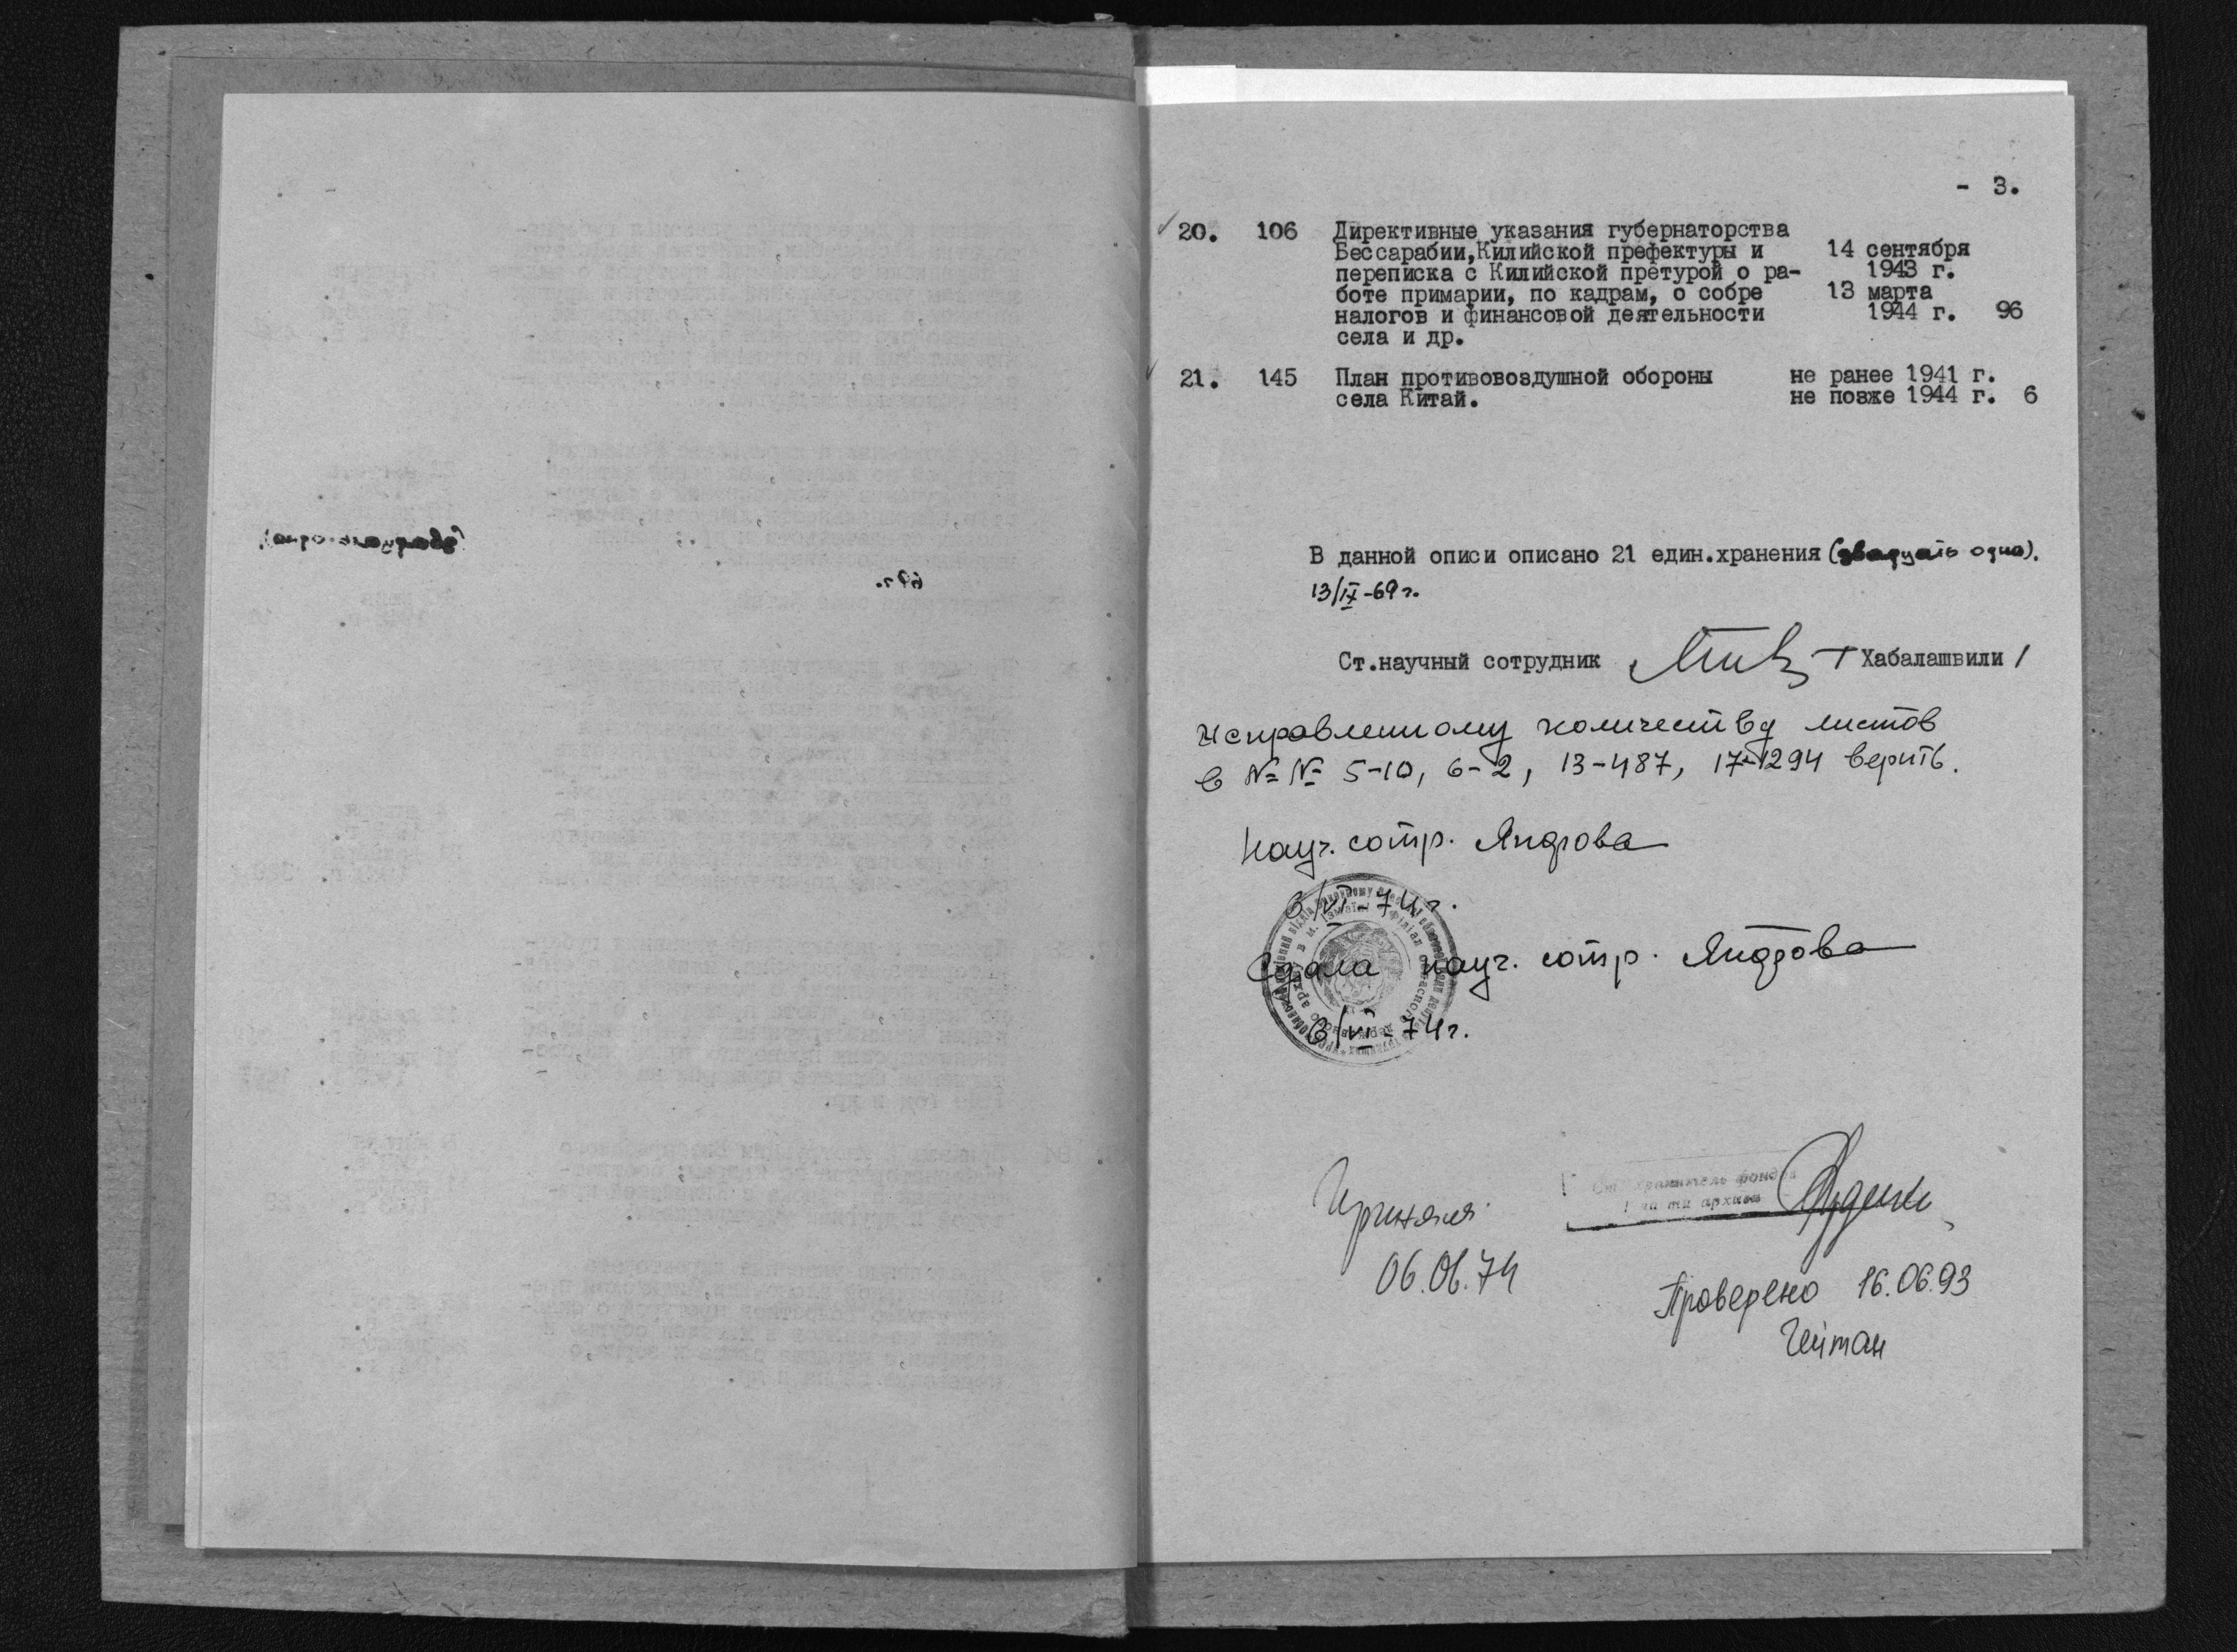 - 3.
20. 106 Директивные указания губернаторства
Бессарабии,Килийской префектуры и 14 сентября
переписка с Килийской претурой о ра- 1943 г.
боте примарии, по кадрам, о собре 13 марта
налогов и финансовой деятельности 1944 г. 96
села и др.
21. 145 План противовоздушной обороны не ранее 1941 г.
села Китай. не позже 1944 г. 6
В данной описи описано 21 един.хранения (двадцать одна).
13/IX-69 г.
Ст.научный сотрудник Хабалашвили /
исправленному количеству листов
в №№ 5-10, 6-2, 13-487, 17-1294 верить.
Науч. сотр.
6/VI-74г.
Сдала науч. сотр.
6/VI-74г.
Приняла
06.06.74
Проверено 16.06.93